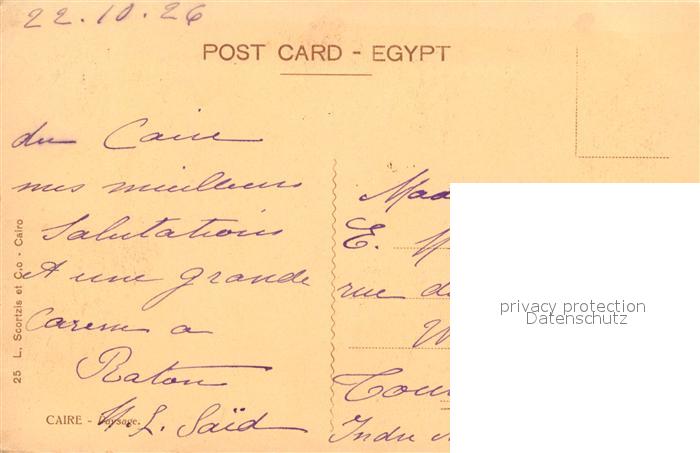 22.10.26
POST CARD - EGYPT
du Caire
mes meilleures
Salutations
et une grande
Caresse a
Raton
L. Saïd
25 L. Scortzis et C.o - Cairo
CAIRE - Paysage.
E.
rue
Indre
privacy protection
Datenschutz